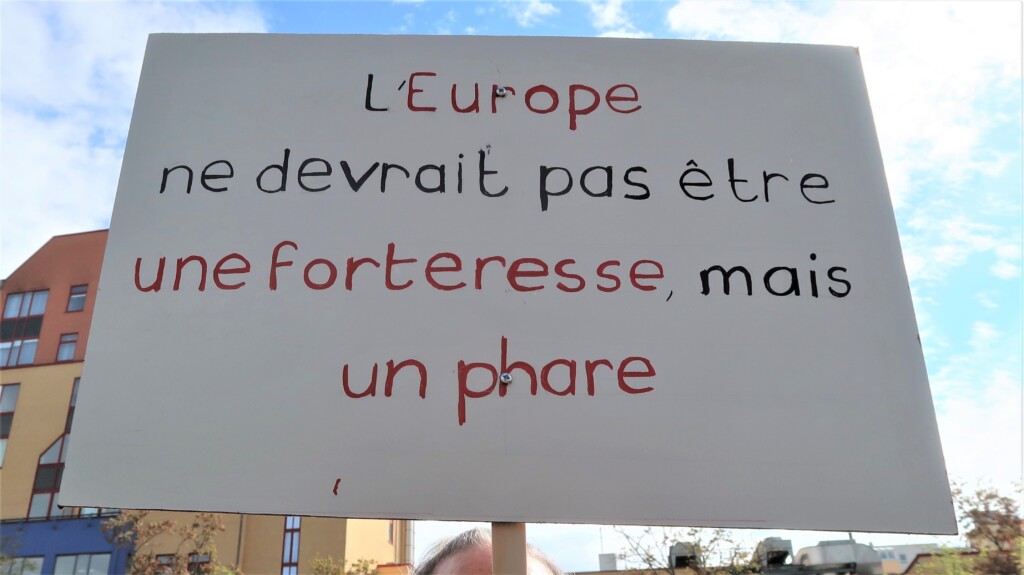 L'Europe
ne devrait pas être
une forteresse, mais
un phare